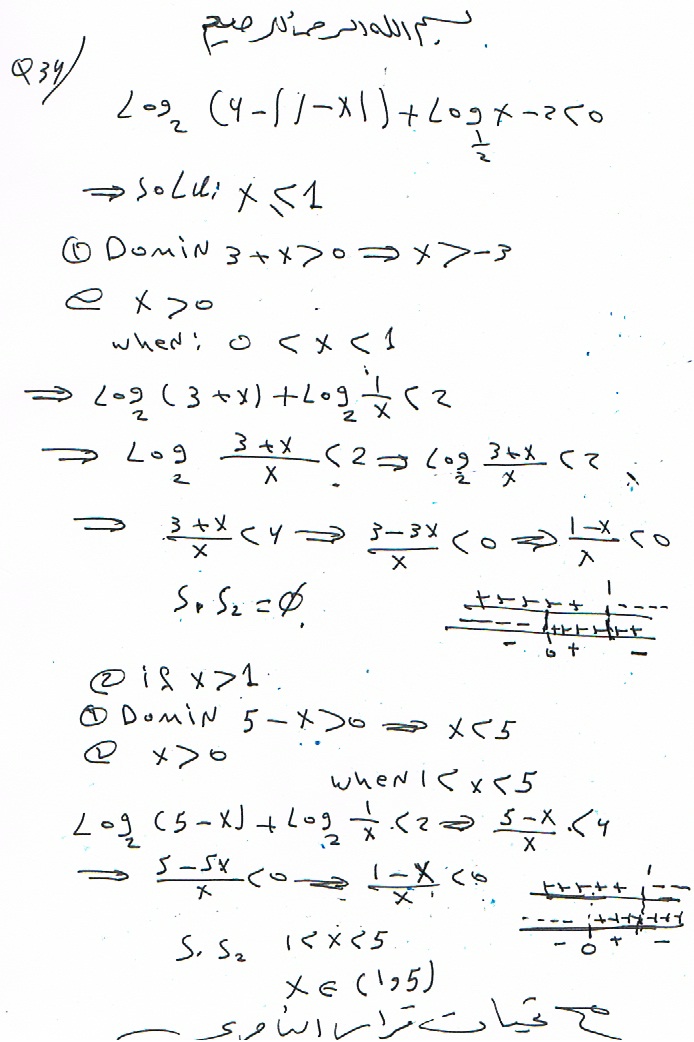 بسم الله الرحمن الرحيم
Q34/
Log₂ (4-|1-x|) + Log_{1/2} x -2<0
⇒ SoLUi x ≤ 1
① DomiN 3+x>0 ⇒ x>-3
② x>0
when: 0 < x < 1
⇒ Log₂ (3+x) + Log₂ 1/x < 2
⇒ Log₂ (3+x)/x < 2 ⇒ Log₂ (3+x)/x < 2
⇒ (3+x)/x < 4 ⇒ (3-3x)/x < 0 ⇒ (1-x)/x < 0
S₁ S₂ = ∅
1
+++++ ----
---- ++++++
- 0 + -
② if x>1
① DomiN 5-x>0 ⇒ x<5
② x>0
when 1< x <5
Log₂ (5-x) + Log₂ 1/x < 2 ⇒ (5-x)/x < 4
⇒ (5-5x)/x < 0 ⇒ (1-x)/x < 0
1
+++++ --
---- +++++++
- 0 + -
S. S₂ 1<x<5
x ∈ (1,5)
تحيات